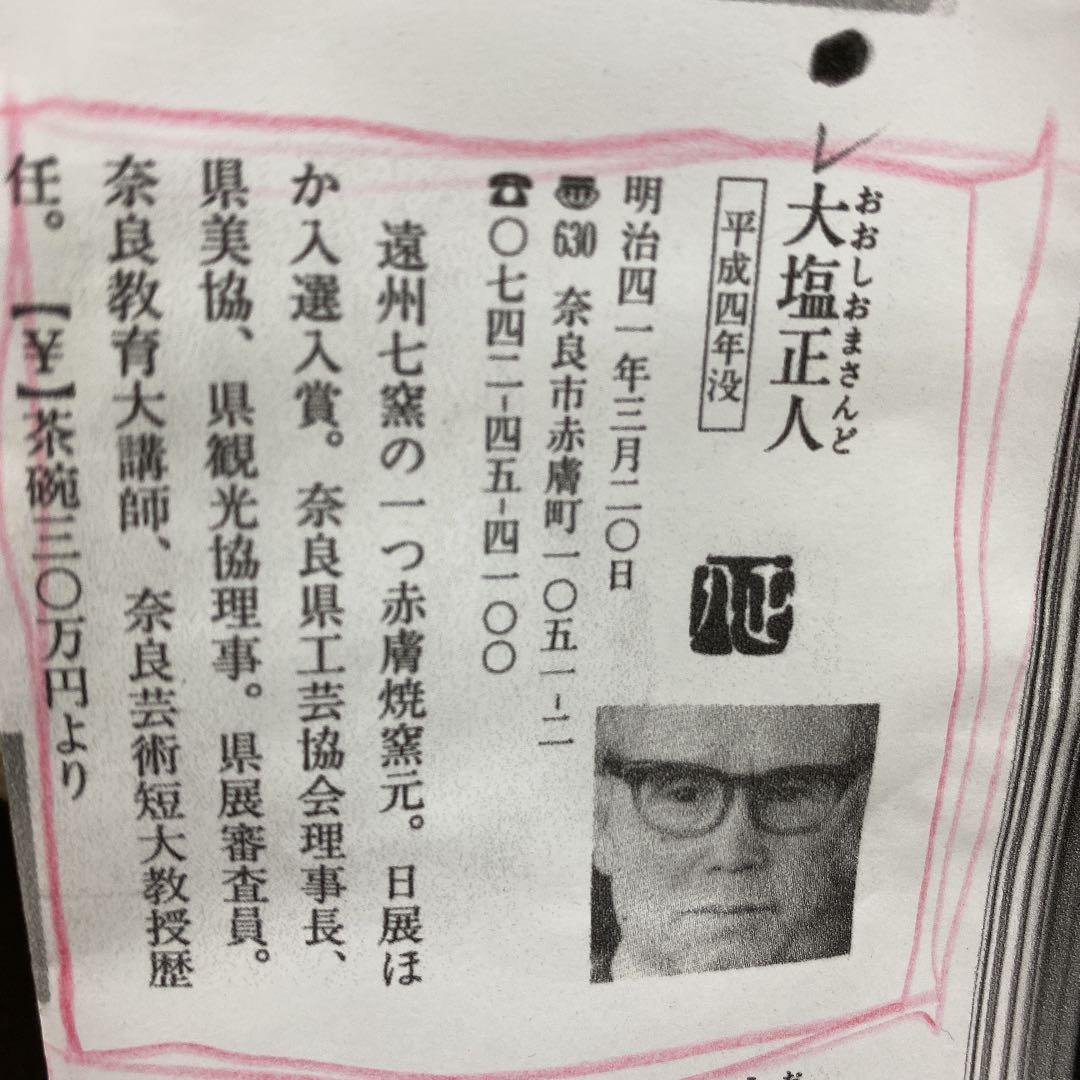 おおしおまさんど
大塩正人
平成四年没
明治四一年三月二〇日
〠630 奈良市赤膚町一〇五一-二
☎〇七四二-四五-四一〇〇
遠州七窯の一つ赤膚焼窯元。日展ほ
か入選入賞。奈良県工芸協会理事長、
県美協、県観光協理事。県展審査員。
奈良教育大講師、奈良芸術短大教授歴
任。【¥】茶碗三〇万円より